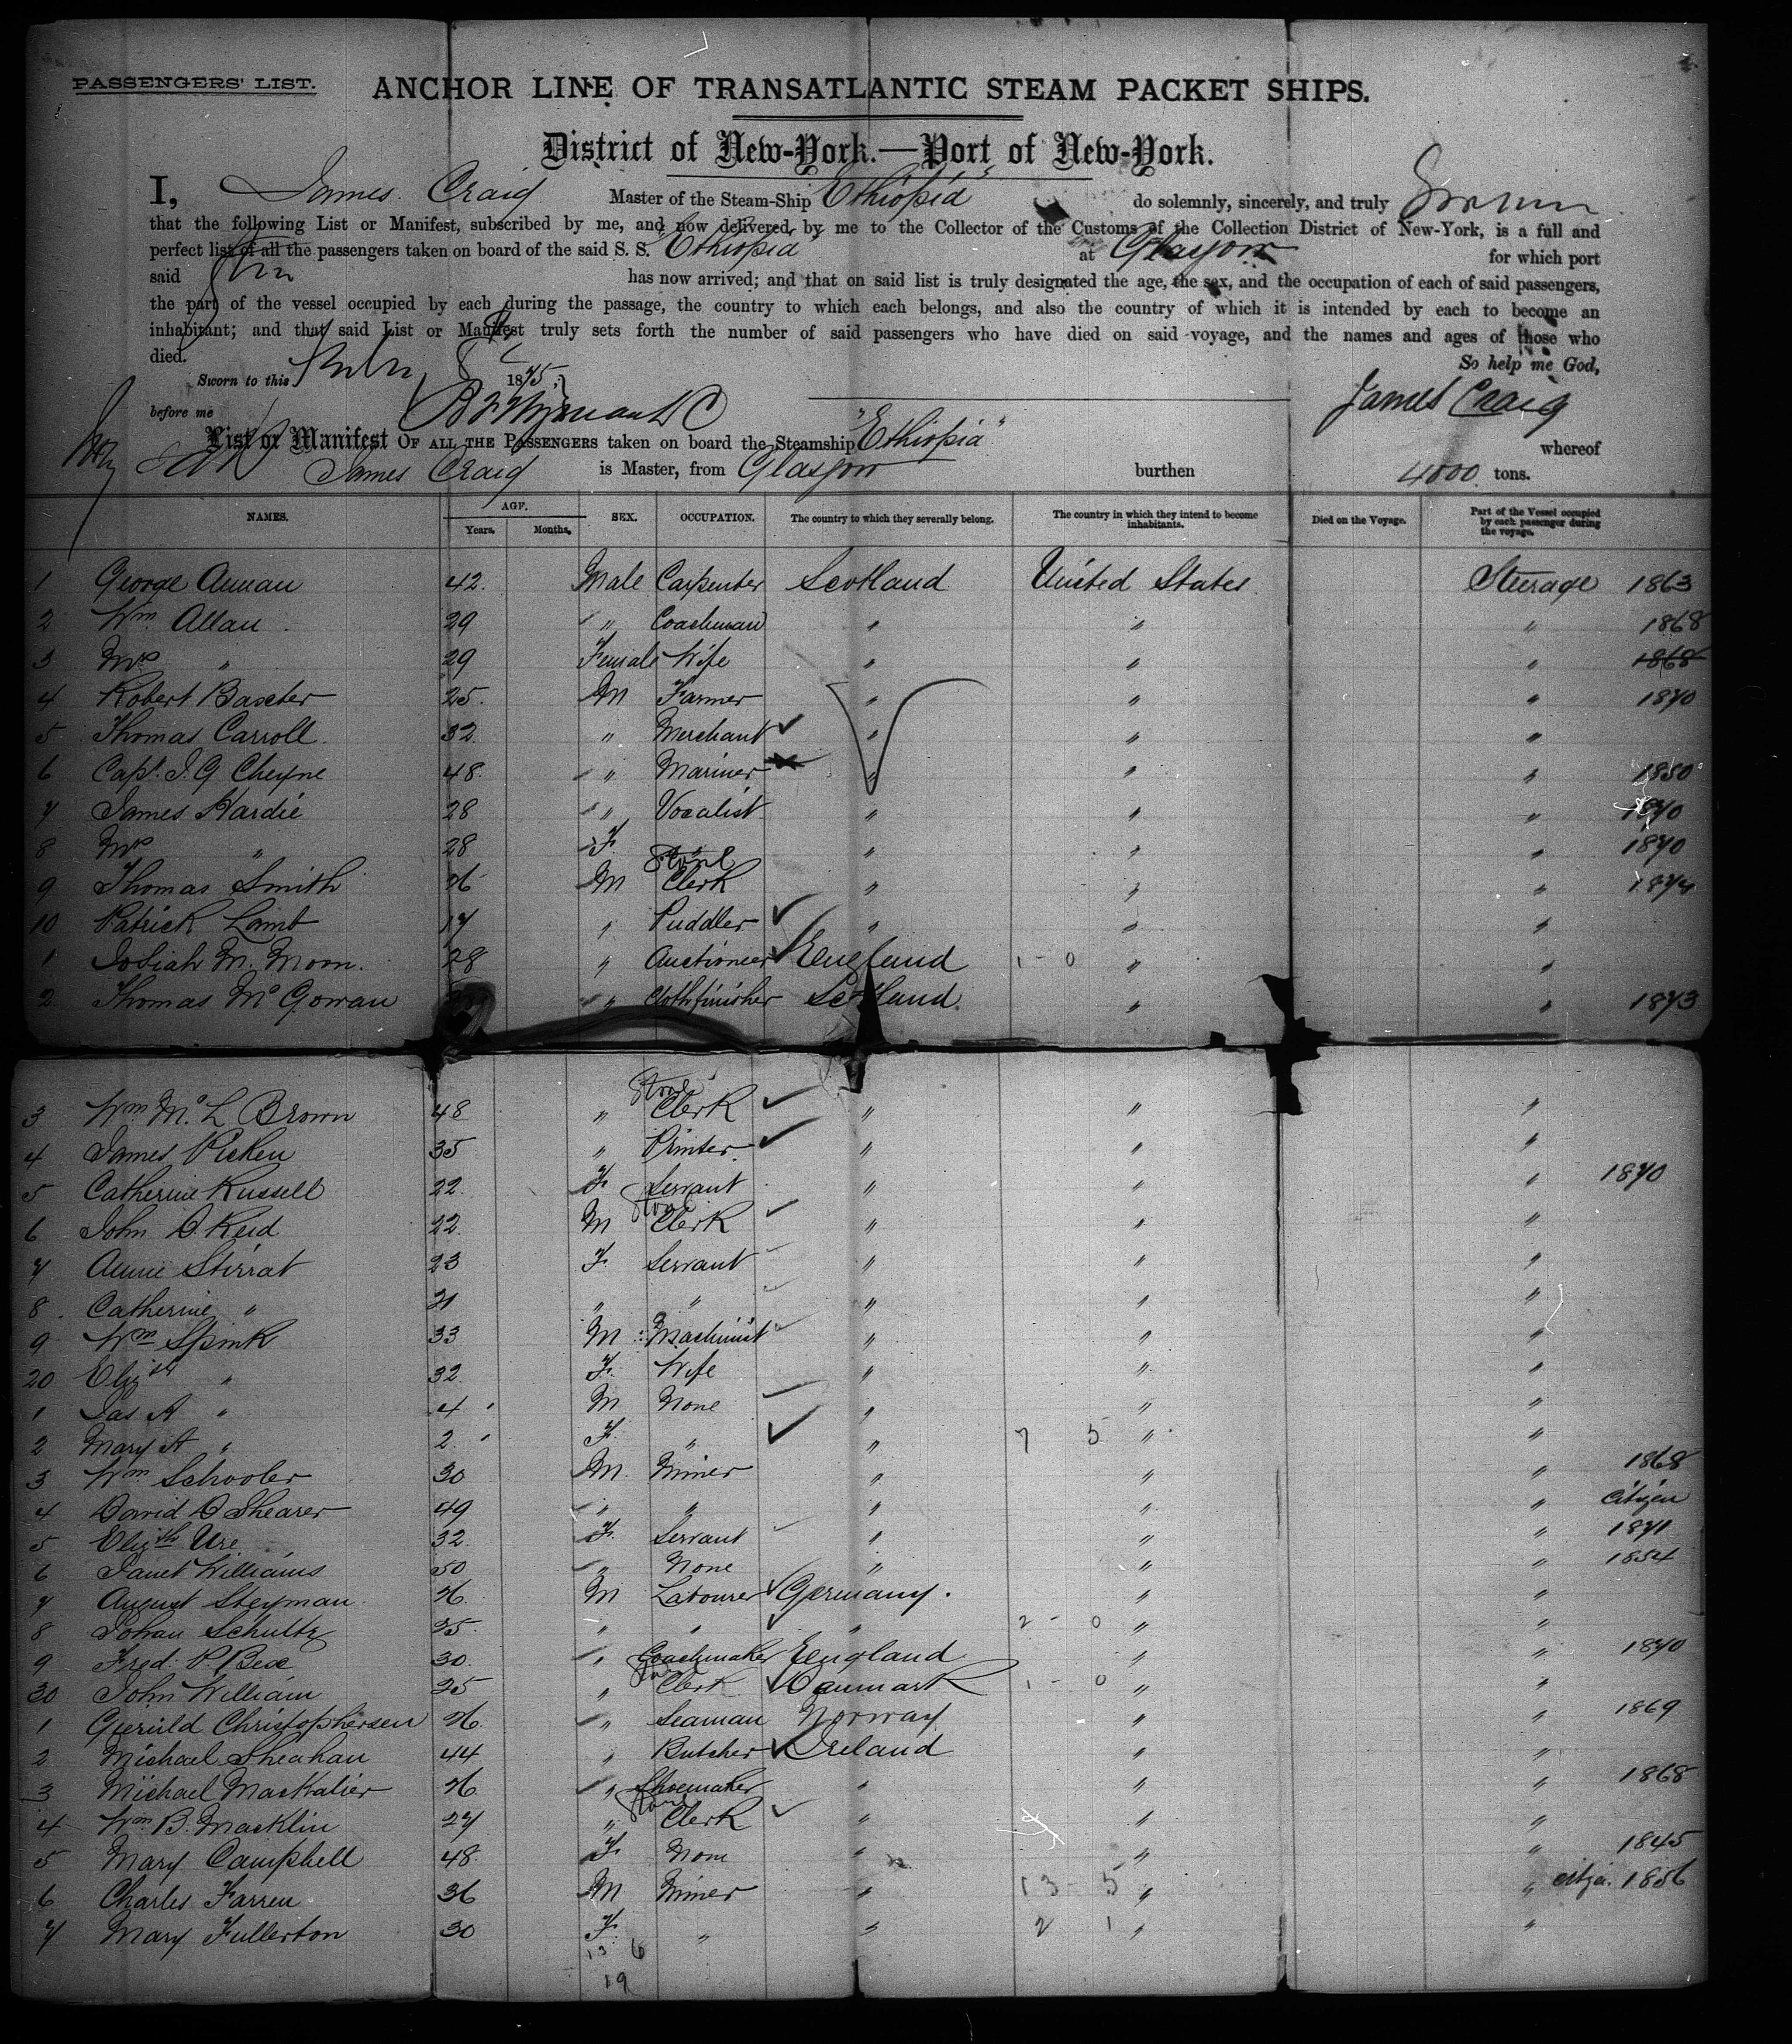 PASSENGERS' LIST.
ANCHOR LINE OF TRANSATLANTIC STEAM PACKET SHIPS.
District of New-York.—Port of New-York.
I, James Craig Master of the Steam-Ship "Ethiopia" do solemnly, sincerely, and truly Swear
that the following List or Manifest, subscribed by me, and now delivered by me to the Collector of the Customs of the Collection District of New-York, is a full and
perfect list of all the passengers taken on board of the said S. S. "Ethiopia" at Glasgow for which port
said has now arrived; and that on said list is truly designated the age, the sex, and the occupation of each of said passengers,
the part of the vessel occupied by each during the passage, the country to which each belongs, and also the country of which it is intended by each to become an
inhabitant; and that said List or Manifest truly sets forth the number of said passengers who have died on said voyage, and the names and ages of those who
died. So help me God,
Sworn to this 8 1875,
before me James Craig
List or Manifest OF ALL THE PASSENGERS taken on board the Steamship "Ethiopia" whereof
James Craig is Master, from Glasgow burthen 4000 tons.
NAMES. AGE. Years. Months. SEX. OCCUPATION. The country to which they severally belong. The country in which they intend to become inhabitants. Died on the Voyage. Part of the Vessel occupied by each passenger during the voyage.
1 George Auman 42. Male Carpenter Scotland United States Steerage 1863
2 Wm Allan 29 " Coachman " " " 1868
3 Mrs " 29 Female Wife " " " 1868
4 Robert Baxter 25. M Farmer " " " 1870
5 Thomas Carroll 32 " Merchant " " "
6 Capt. J. G Cheyne 48. " Mariner " " " 1850
7 James Hardie 28 " Vocalist " " " 1870
8 Mrs " 28 F " " " 1870
9 Thomas Smith 26 M Store Clerk " " " 1874
10 Patrick Lamb 17 " Puddler " " "
1 Josiah M. Moon. 28 " Auctioneer England 1 - 0 " "
2 Thomas McGowan " Clothfinisher Scotland. " " 1873
3 Wm McL Brown 48 " Store Clerk " " "
4 James Picken 35 " Printer. " " "
5 Catherine Russell 22 F Servant " " " 1870
6 John O. Reid 22. M Store Clerk " " "
7 Annie Stirrat 23 F Servant " " "
8 Catherine " 21 " " " " "
9 Wm Spink 33 M Machinist " " "
20 Elizth " 32 F. Wife " " "
1 Jas A " 4 M None " " "
2 Mary A " 2 F. " " 7 5 " "
3 Wm Schooler 30 M. Miner " " " 1868
4 David O Shearer 49 " " " " " Citizen
5 Elizth Ure 32 F. Servant " " " 1871
6 Janet Williams 50 " None " " " 1854
7 August Steyman 26. M Labourer Germany. " "
8 Johan Schultz 25. " " " 2 - 0 " "
9 Fred: P. Bex 30. " Coachmaker England " " 1870
30 John William 25 " Store Clerk Denmark 1 - 0 " "
1 Gueruld Christophersen 26. " Seaman Norway " " 1869
2 Michael Sheahan 44 " Butcher Ireland " "
3 Michael Mackalier 26 " Shoemaker " " " 1868
4 Wm B. Macklin 27 " Store Clerk " " "
5 Mary Campbell 48. F None " " " 1845
6 Charles Farren 36 M Miner " 13 - 5 " " citzn. 1856
7 Mary Fullerton 30 F. " " 2 1 " "
13 6
19